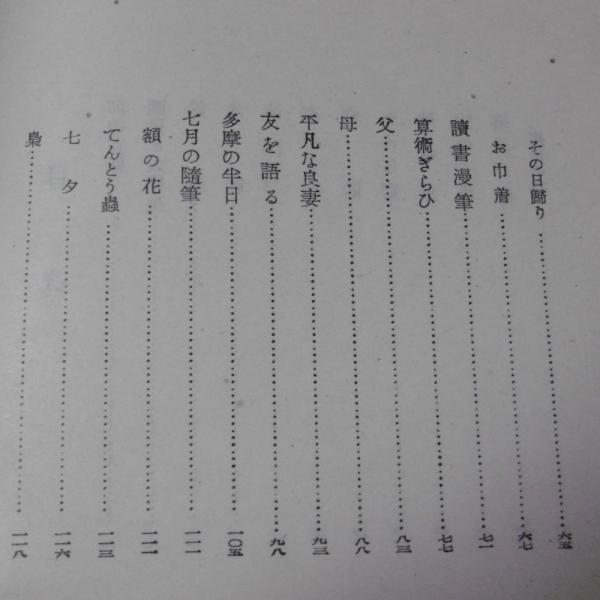 その日歸り……六五
お巾着……六七
讀書漫筆……七一
算術ぎらひ……七七
父……八三
母……八八
平凡な良妻……九三
友を語る……九八
多摩の半日……一〇五
七月の隨筆……一一一
額の花……一一一
てんとう蟲……一一三
七夕……一一六
梟……一一八